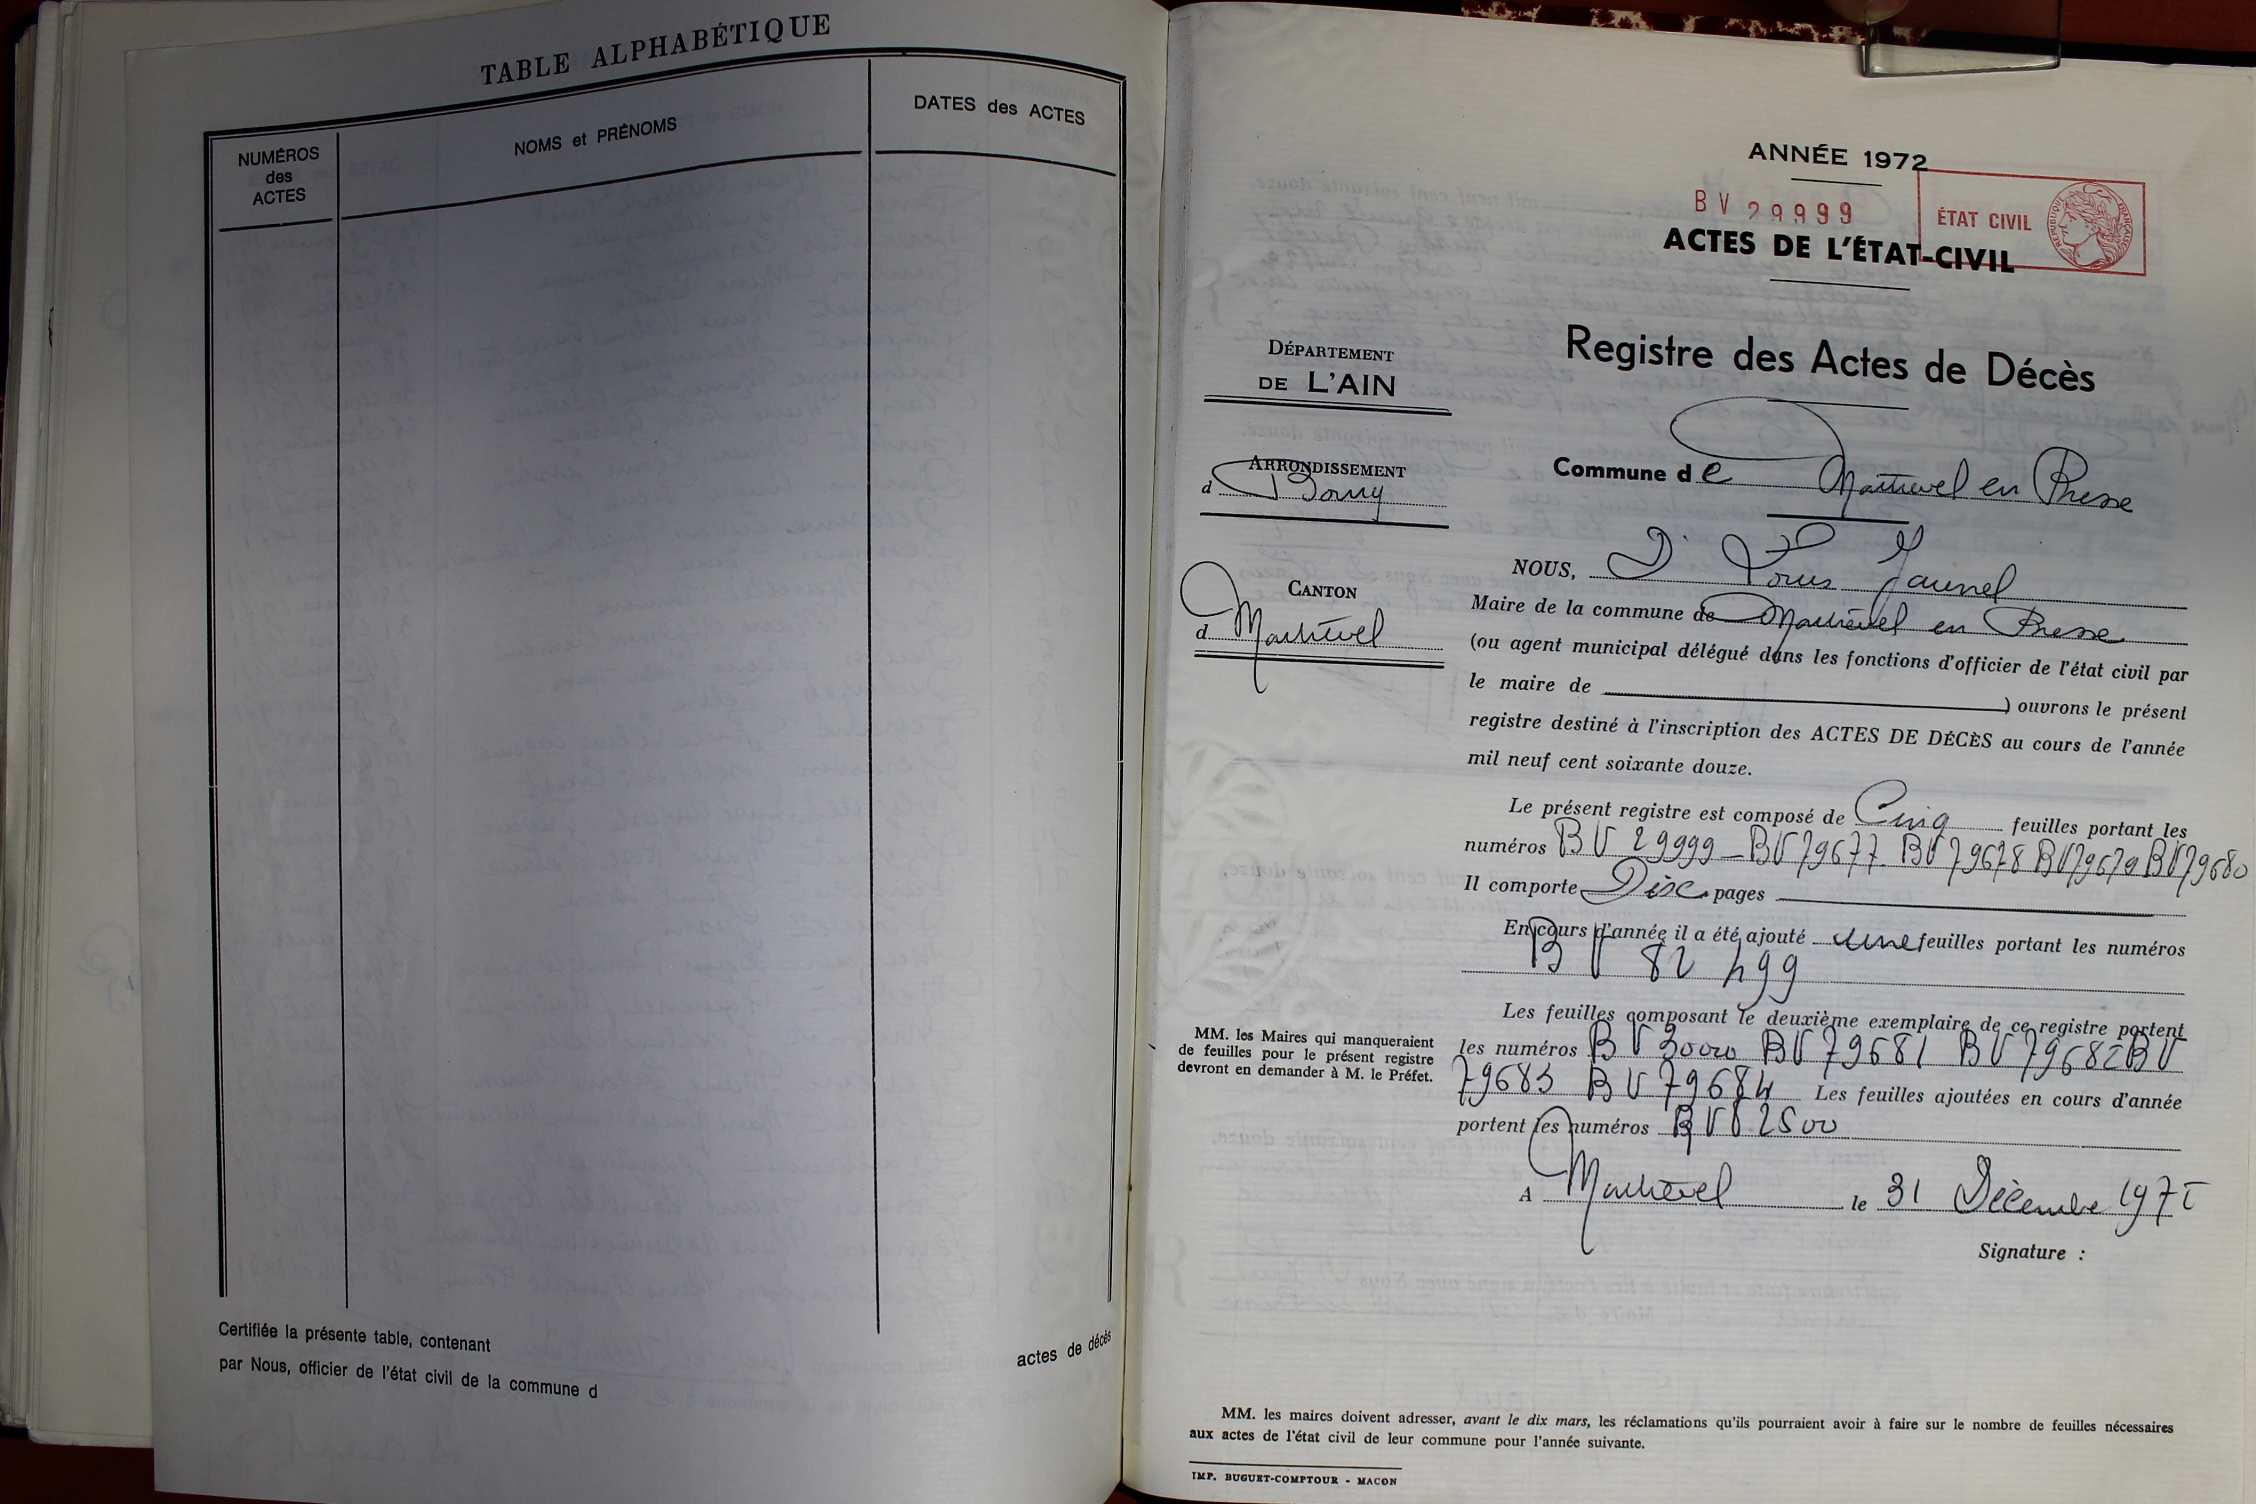 TABLE ALPHABÉTIQUE
NUMÉROS
des
ACTES
NOMS et PRÉNOMS
DATES des ACTES
Certifiée la présente table, contenant
actes de décès
par Nous, officier de l'état civil de la commune d
ANNÉE 1972
BV 29999
ÉTAT CIVIL
RÉPUBLIQUE FRANÇAISE
ACTES DE L'ÉTAT-CIVIL
Registre des Actes de Décès
DÉPARTEMENT
DE L'AIN
ARRONDISSEMENT
d Bourg
CANTON
d Montrevel
Commune de Montrevel en Bresse
NOUS, Dr Louis Jaunel
Maire de la commune de Montrevel en Bresse
(ou agent municipal délégué dans les fonctions d'officier de l'état civil par
le maire de ) ouvrons le présent
registre destiné à l'inscription des ACTES DE DÉCÈS au cours de l'année
mil neuf cent soixante douze.
Le présent registre est composé de Cinq feuilles portant les
numéros BV 29999 - BV 79677 BV 79678 BV 79679 BV 79680
Il comporte Dix pages
En cours d'année il a été ajouté une feuilles portant les numéros
BV 82 499
Les feuilles composant le deuxième exemplaire de ce registre portent
les numéros BV 30000 BV 79681 BV 79682 BV
79683 BV 79684 Les feuilles ajoutées en cours d'année
portent les numéros BV 82500
A Montrevel le 31 Décembre 1971
Signature :
MM. les Maires qui manqueraient
de feuilles pour le présent registre
devront en demander à M. le Préfet.
MM. les maires doivent adresser, avant le dix mars, les réclamations qu'ils pourraient avoir à faire sur le nombre de feuilles nécessaires
aux actes de l'état civil de leur commune pour l'année suivante.
IMP. BUGUET-COMPTOUR - MACON